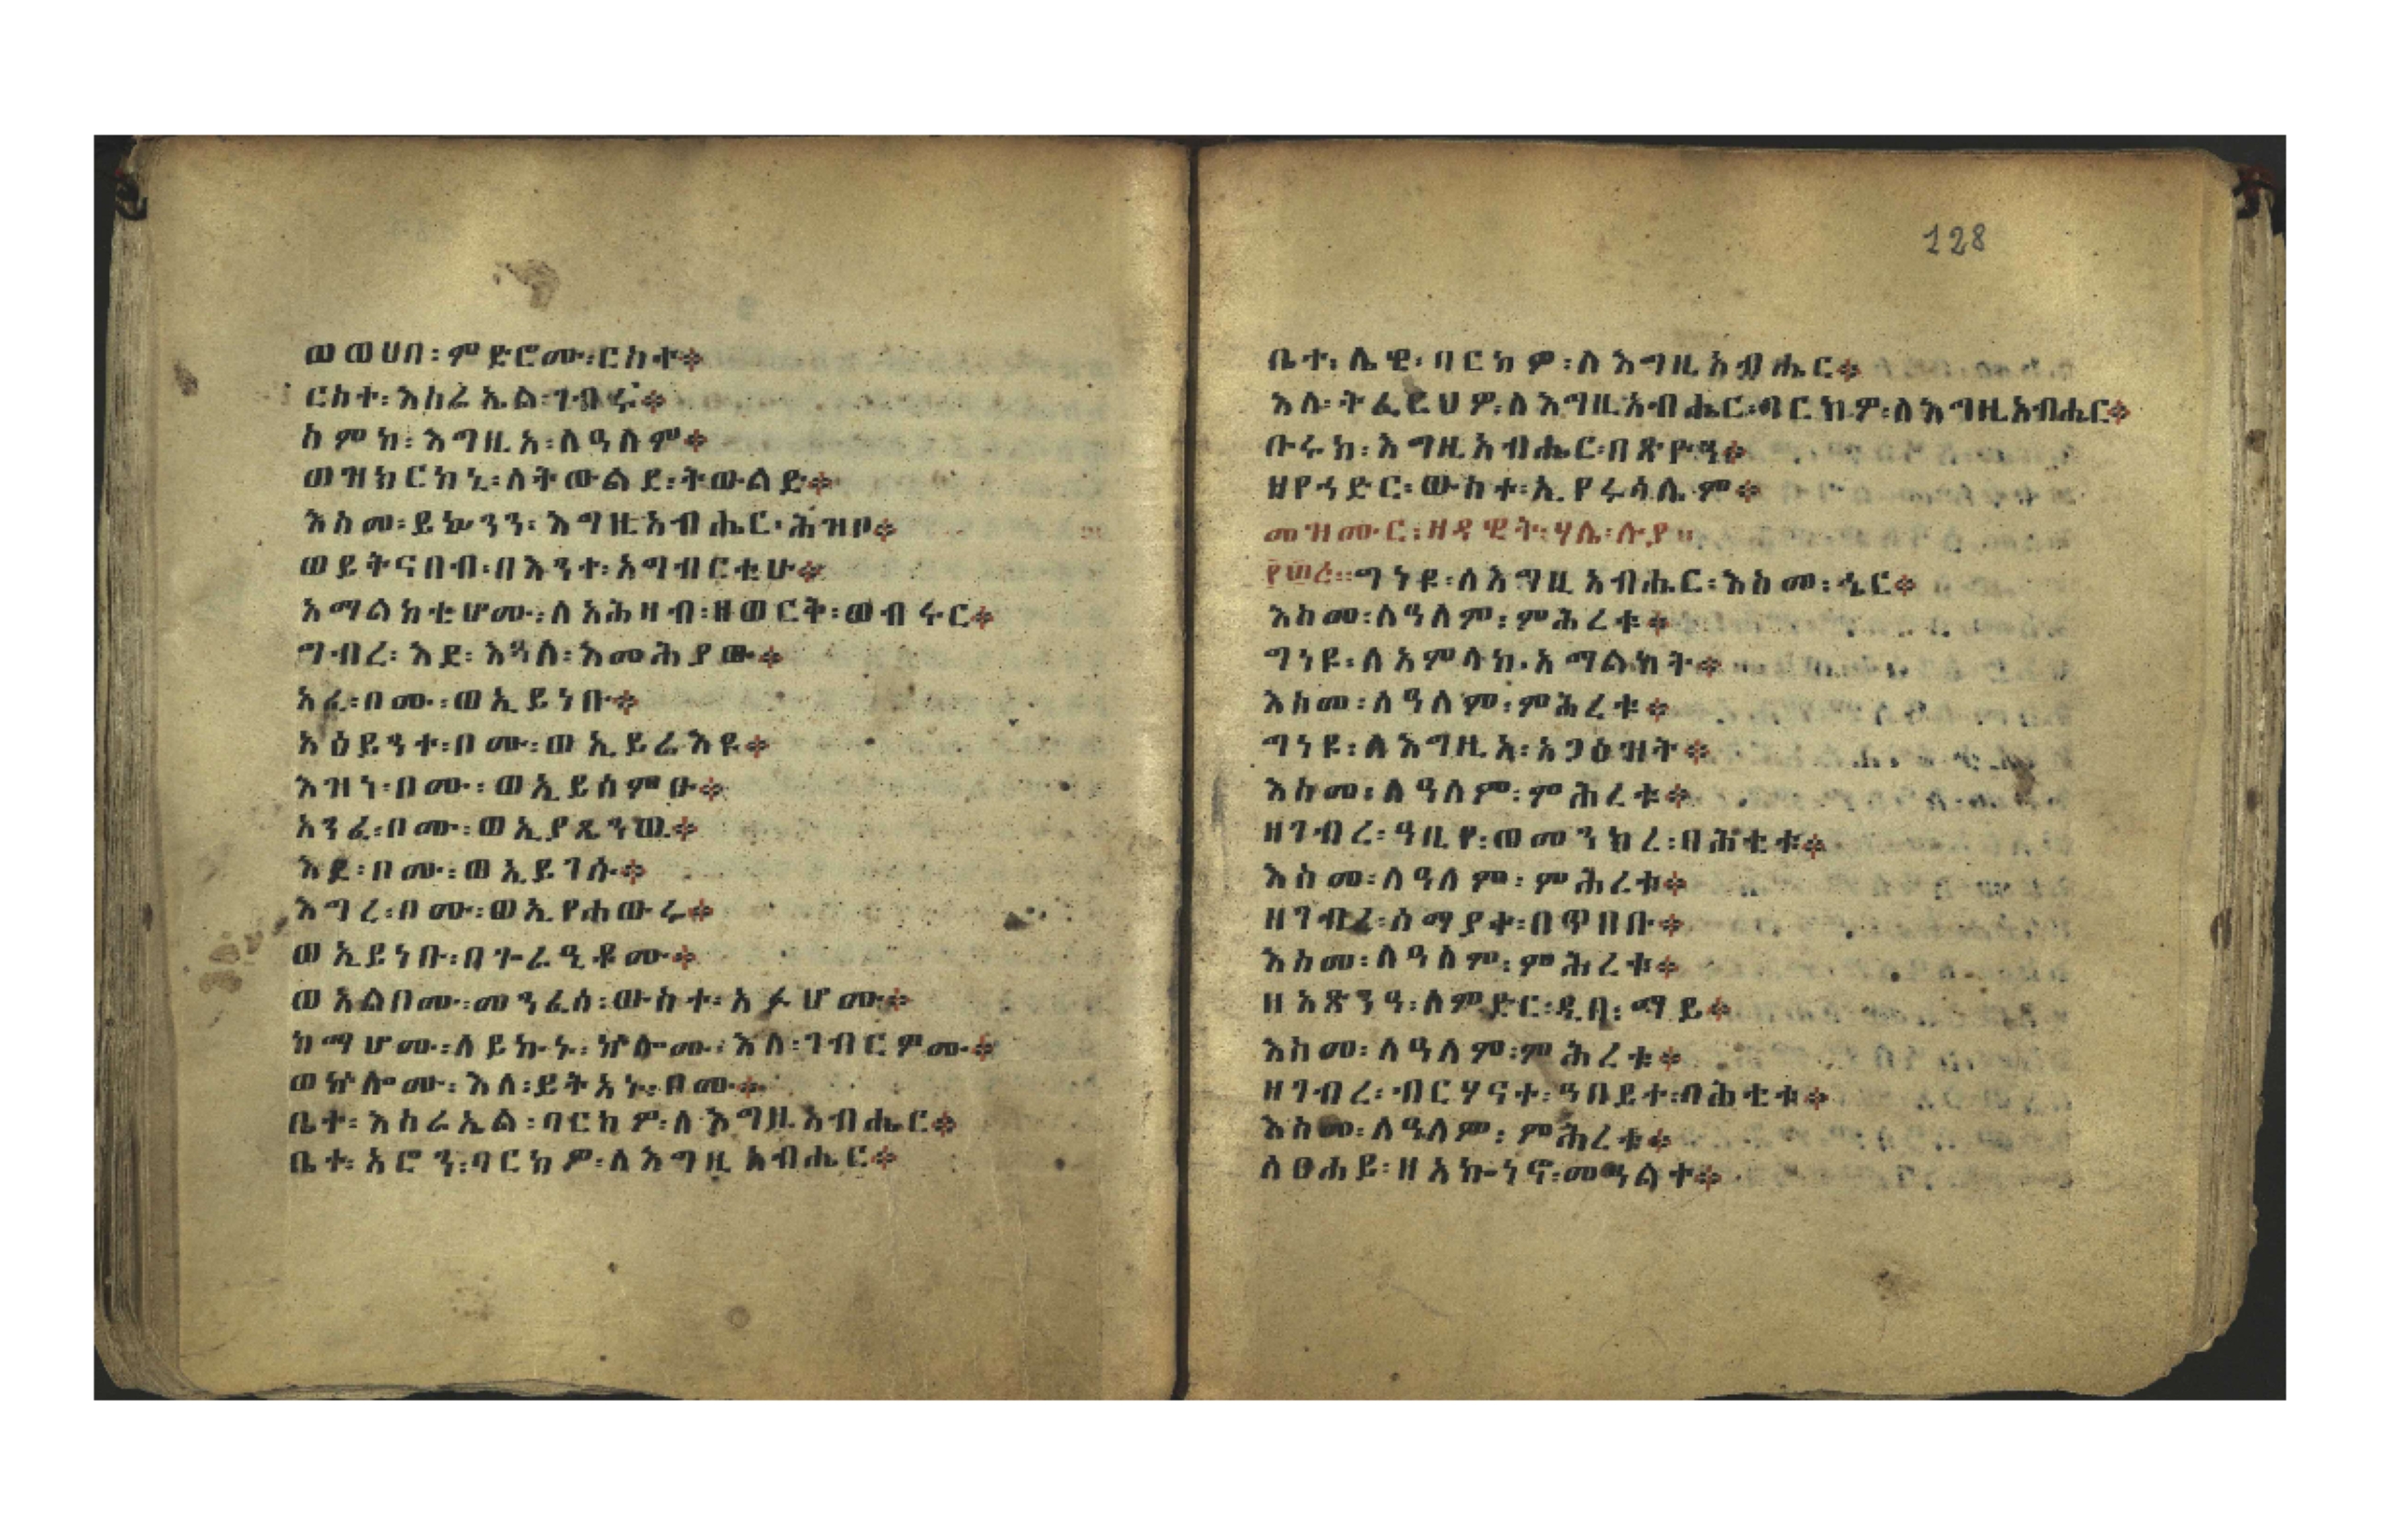 ወወሀበ፡ምድሮሙ፡ርስተ፨
ርስተ፡እስራኤል፡ገብሩ፨
ስምከ፡እግዚአ፡ለዓለም፨
ወዝክርከኒ፡ለትውልደ፡ትውልድ፨
እስመ፡ይኴንን፡እግዚአብሔር፡ሕዝቦ፨
ወይትናበብ፡በእንተ፡አግብርቲሁ፨
አማልክቲሆሙ፡ለአሕዛብ፡ዘወርቅ፡ወብሩር፨
ግብረ፡እደ፡እጓለ፡እመሕያው፨
አፈ፡በሙ፡ወኢይነቡ፨
አዕይንተ፡በሙ፡ወኢይሬእዩ፨
እዝነ፡በሙ፡ወኢይሰምዑ፨
አንፈ፡በሙ፡ወኢያጼንዉ፨
እደ፡በሙ፡ወኢይገሱ፨
እግረ፡በሙ፡ወኢየሐውሩ፨
ወኢይነቡ፡በጉራዒቶሙ፨
ወአልቦሙ፡መንፈሰ፡ውስተ፡አፉሆሙ፨
ከማሆሙ፡ለይኩኑ፡ኵሎሙ፡እለ፡ገብርዎሙ፨
ወኵሎሙ፡እለ፡ይትአኑ፡ቦሙ፨
ቤተ፡እስራኤል፡ባርክዎ፡ለእግዚአብሔር፨
ቤተ፡አሮን፡ባርክዎ፡ለእግዚአብሔር፨
128
ቤተ፡ሌዊ፡ባርክዎ፡ለእግዚአብሔር፨
እለ፡ትፈርህዎ፡ለእግዚአብሔር፡ባርክዎ፡ለእግዚአብሔር፨
ቡሩክ፡እግዚአብሔር፡በጽዮን፨
ዘየኀድር፡ውስተ፡ኢየሩሳሌም፨
መዝሙር፡ዘዳዊት፡ሃሌ፡ሉያ፡፡
ግነዩ፡ለእግዚአብሔር፡እስመ፡ኄር፨
እስመ፡ለዓለም፡ምሕረቱ፨
ግነዩ፡ለአምላከ፡አማልክት፨
እስመ፡ለዓለም፡ምሕረቱ፨
ግነዩ፡ለእግዚአ፡አጋዕዝት፨
እስመ፡ለዓለም፡ምሕረቱ፨
ዘገብረ፡ዓቢየ፡ወመንክረ፡ባሕቲቱ፨
እስመ፡ለዓለም፡ምሕረቱ፨
ዘገብረ፡ሰማያተ፡በጥበቡ፨
እስመ፡ለዓለም፡ምሕረቱ፨
ዘአጽንዓ፡ለምድር፡ዲበ፡ማይ፨
እስመ፡ለዓለም፡ምሕረቱ፨
ዘገብረ፡ብርሃናተ፡ዓበይተ፡ባሕቲቱ፨
እስመ፡ለዓለም፡ምሕረቱ፨
ለፀሐይ፡ዘአኰነኖ፡መዓልተ፨